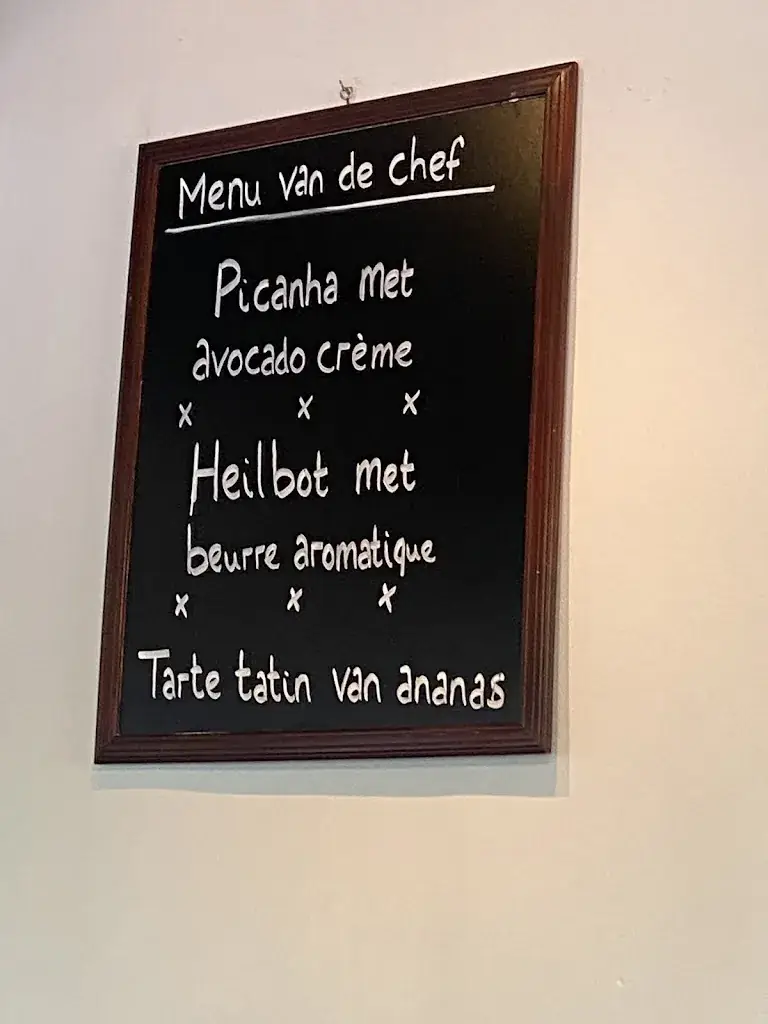 Menu van de chef
Picanha met
avocado crème
x x x
Heilbot met
beurre aromatique
x x x
Tarte tatin van ananas